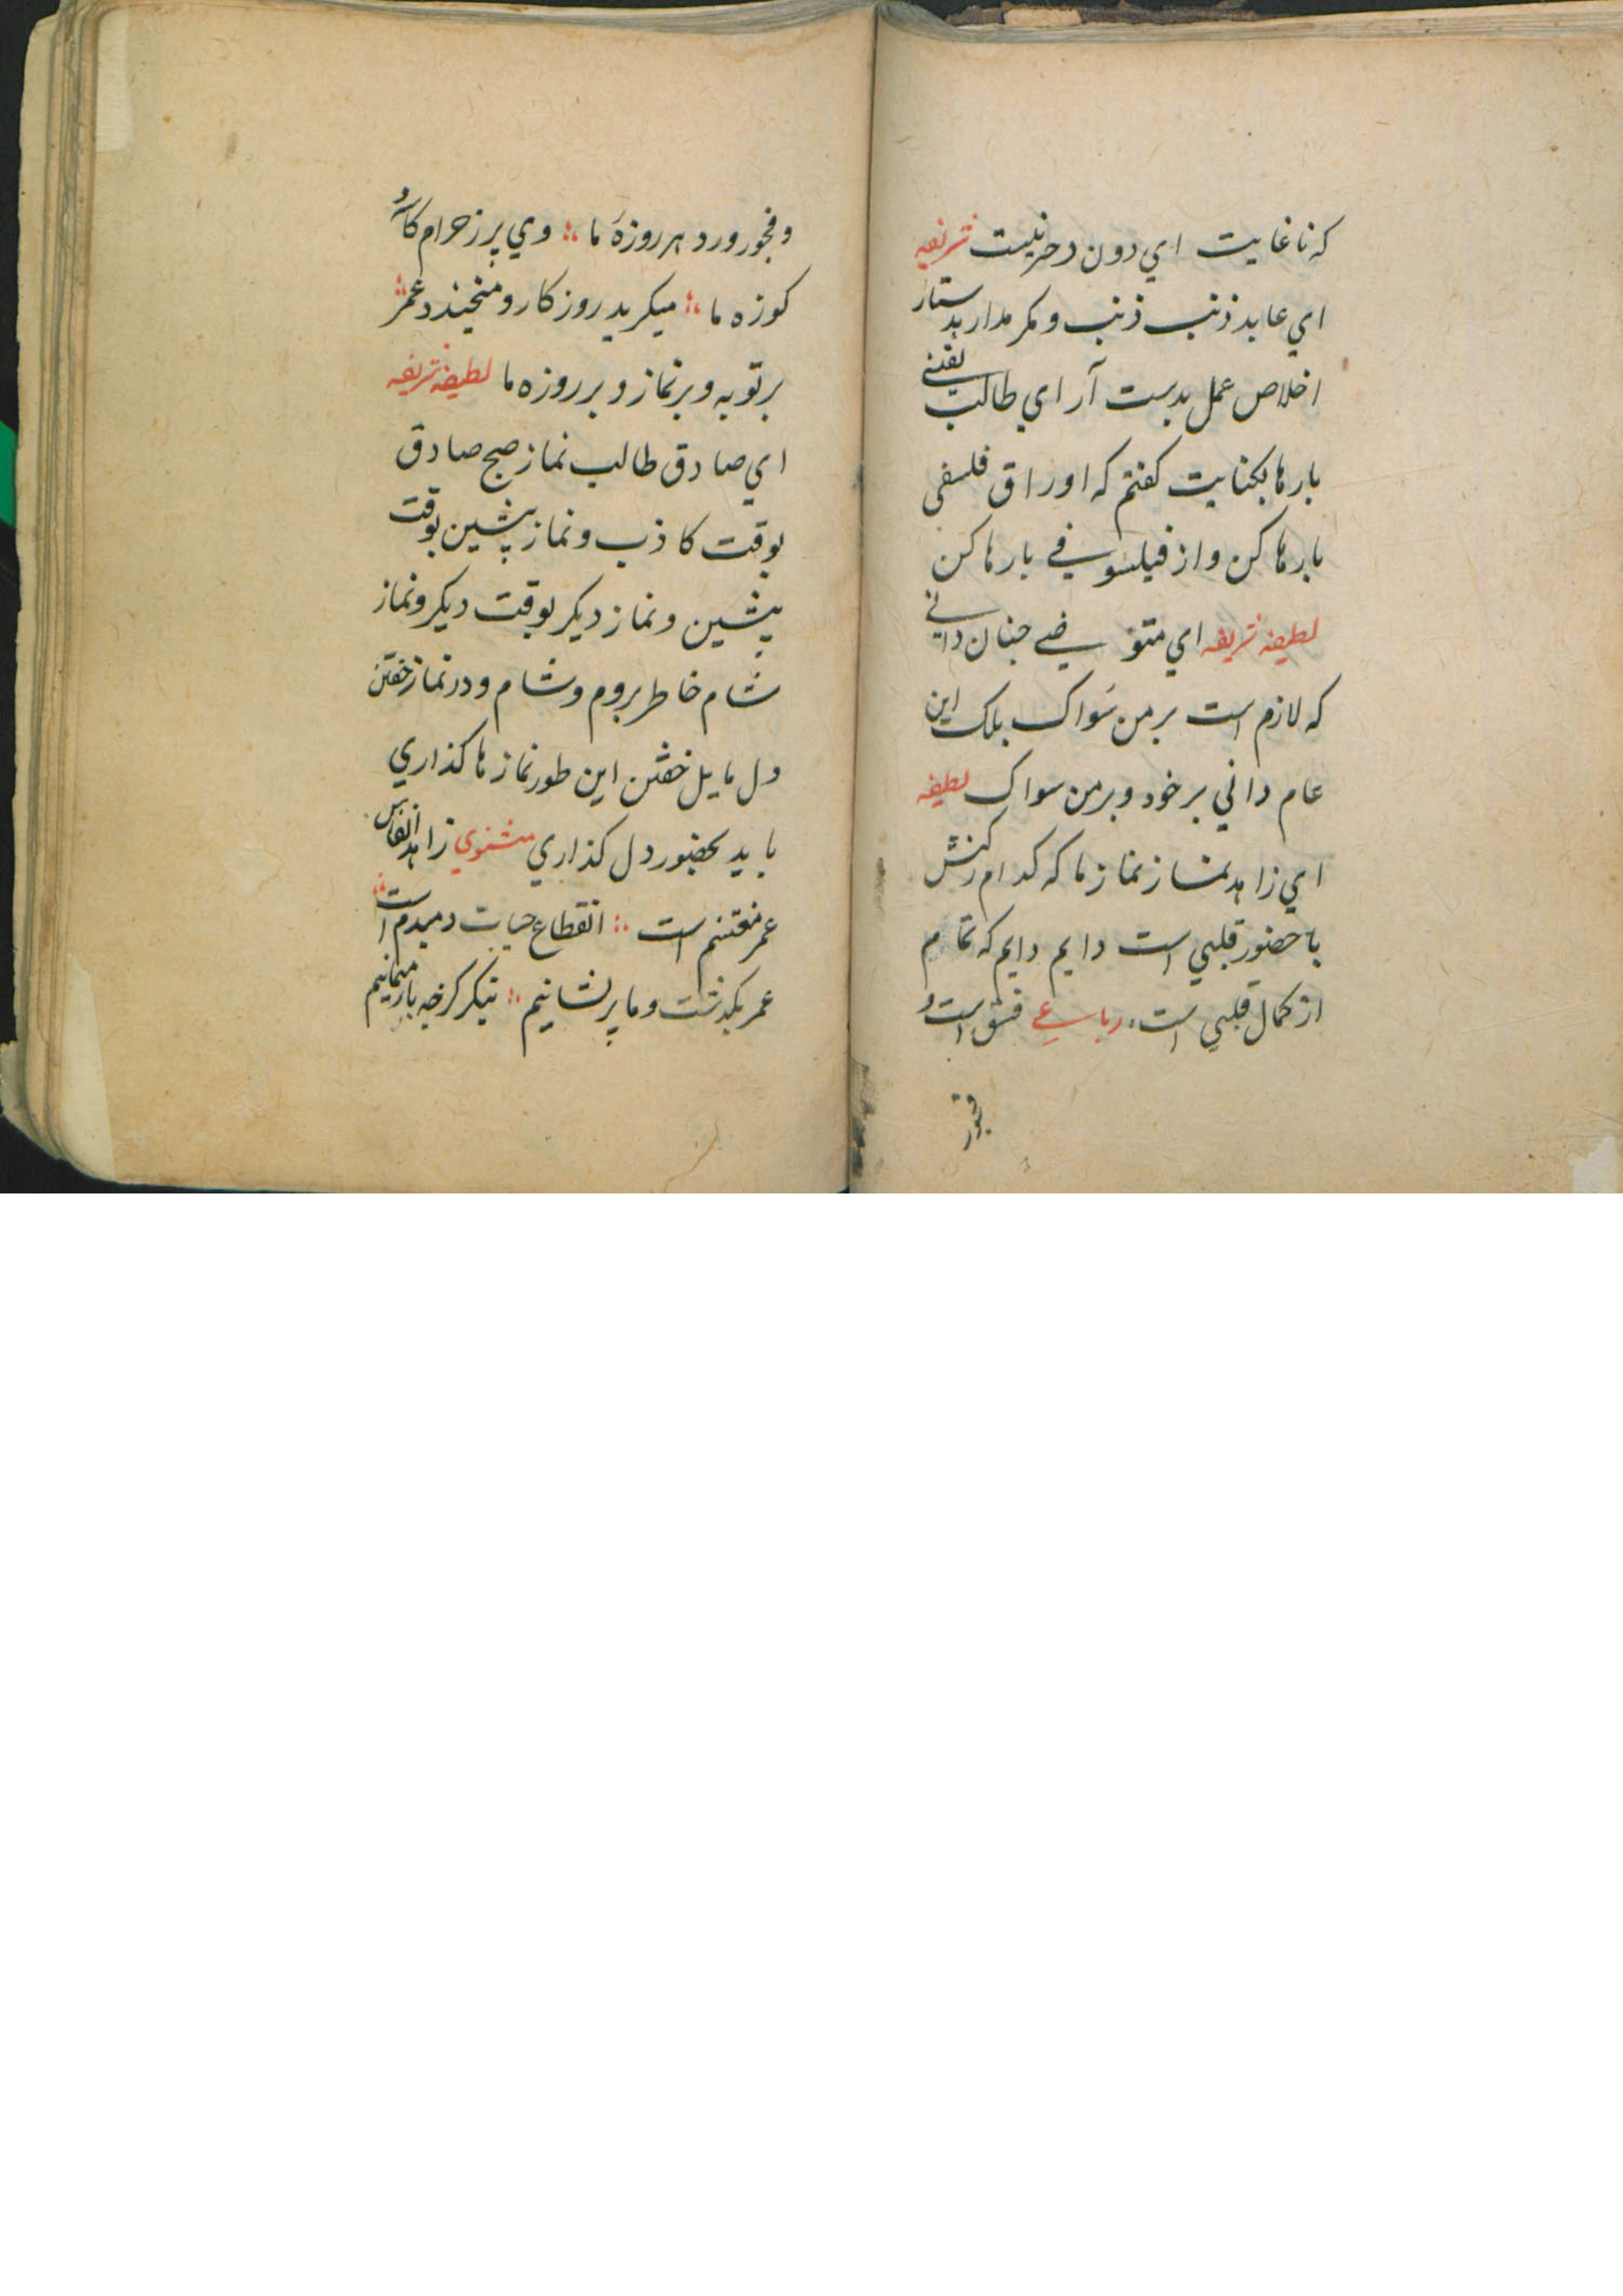 که تا غایت اي دون دخر نیست شریفه
اي عابد ذنب ذنب و مکر مدار بدستار
اخلاص عمل بدست آر اي طالب یقینے
بارها بکنایت کفتم که اوراق فلسفی
بارها کن و از فیلسوفے بارها کن
لطیفه شریفه اي متوضے چنان دانے
که لازم است بر من سَواک بلک این
عام داني بر خود و بر من سواک لطیفه
اي زاهد نماز نماز ما که کدام رکنش
با حضور قلبي است دایم دایم که تمام
از کمال قلبي است رباعے فسق است و
فجور
و فجور ورد هر روزهٔ ما ؛ وي پر ز حرام کاسهٔ و
کوزه ما ؛ میکرید روزکار و میخندد عمر
بر توبه و بر نماز و بر روزه ما لطیفه شریفه
اي صادق طالب نماز صبح صادق
بوقت کاذب و نماز پیشین بوقت
پیشین و نماز دیکر بوقت دیکر و نماز
شام خاطر بروم و شام و در نماز خفتن
دل مایل خفتن این طور نمازها کذاري
باید بحضور دل کذاري مثنوي زاهد انفاس
عمر مغتنم است ؛ انقطاع حیات دمبدم است
عمر بکذشت و ما پریشانیم ؛ بنکر کرچه باز میمانیم